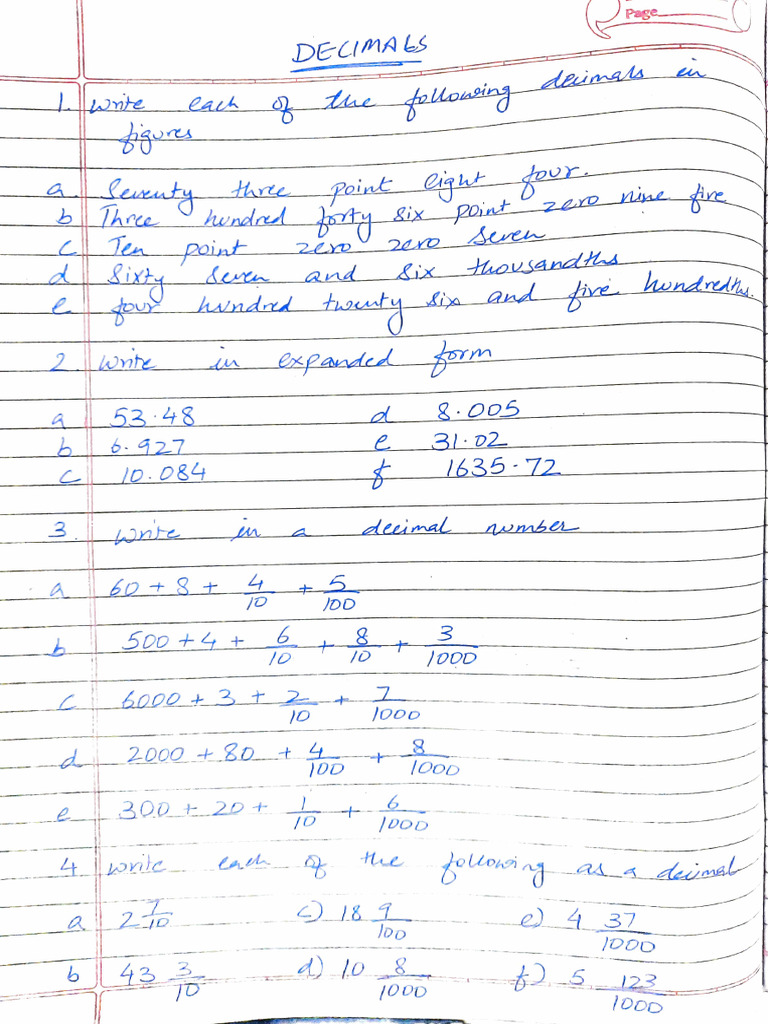 Page
DECIMALS
1. Write each of the following decimals in
figures
a Seventy three point eight four.
b Three hundred forty six point zero nine five
c Ten point zero zero seven
d Sixty seven and six thousandths
e four hundred twenty six and five hundredths.
2. Write in expanded form
a 53.48 d 8.005
b 6.927 e 31.02
c 10.084 f 1635.72
3. Write in a decimal number
a 60 + 8 + 4/10 + 5/100
b 500 + 4 + 6/10 + 8/10 + 3/1000
c 6000 + 3 + 2/10 + 7/1000
d 2000 + 80 + 4/100 + 8/1000
e 300 + 20 + 1/10 + 6/1000
4. Write each of the following as a decimal
a 2 7/10 c) 18 9/100 e) 4 37/1000
b 43 3/10 d) 10 8/1000 f) 5 123/1000